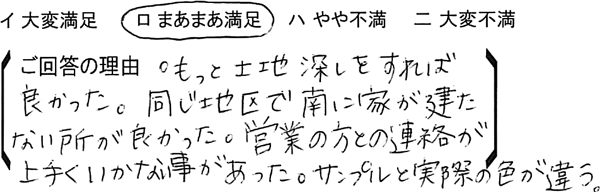 イ 大変満足 ロ まあまあ満足 ハ やや不満 ニ 大変不満
ご回答の理由 ○もっと土地深しをすれば
良かった。同じ地区で南に家が建た
ない所が良かった。営業の方との連絡が
上手くいかない事があった。サンプルと実際の色が違う。